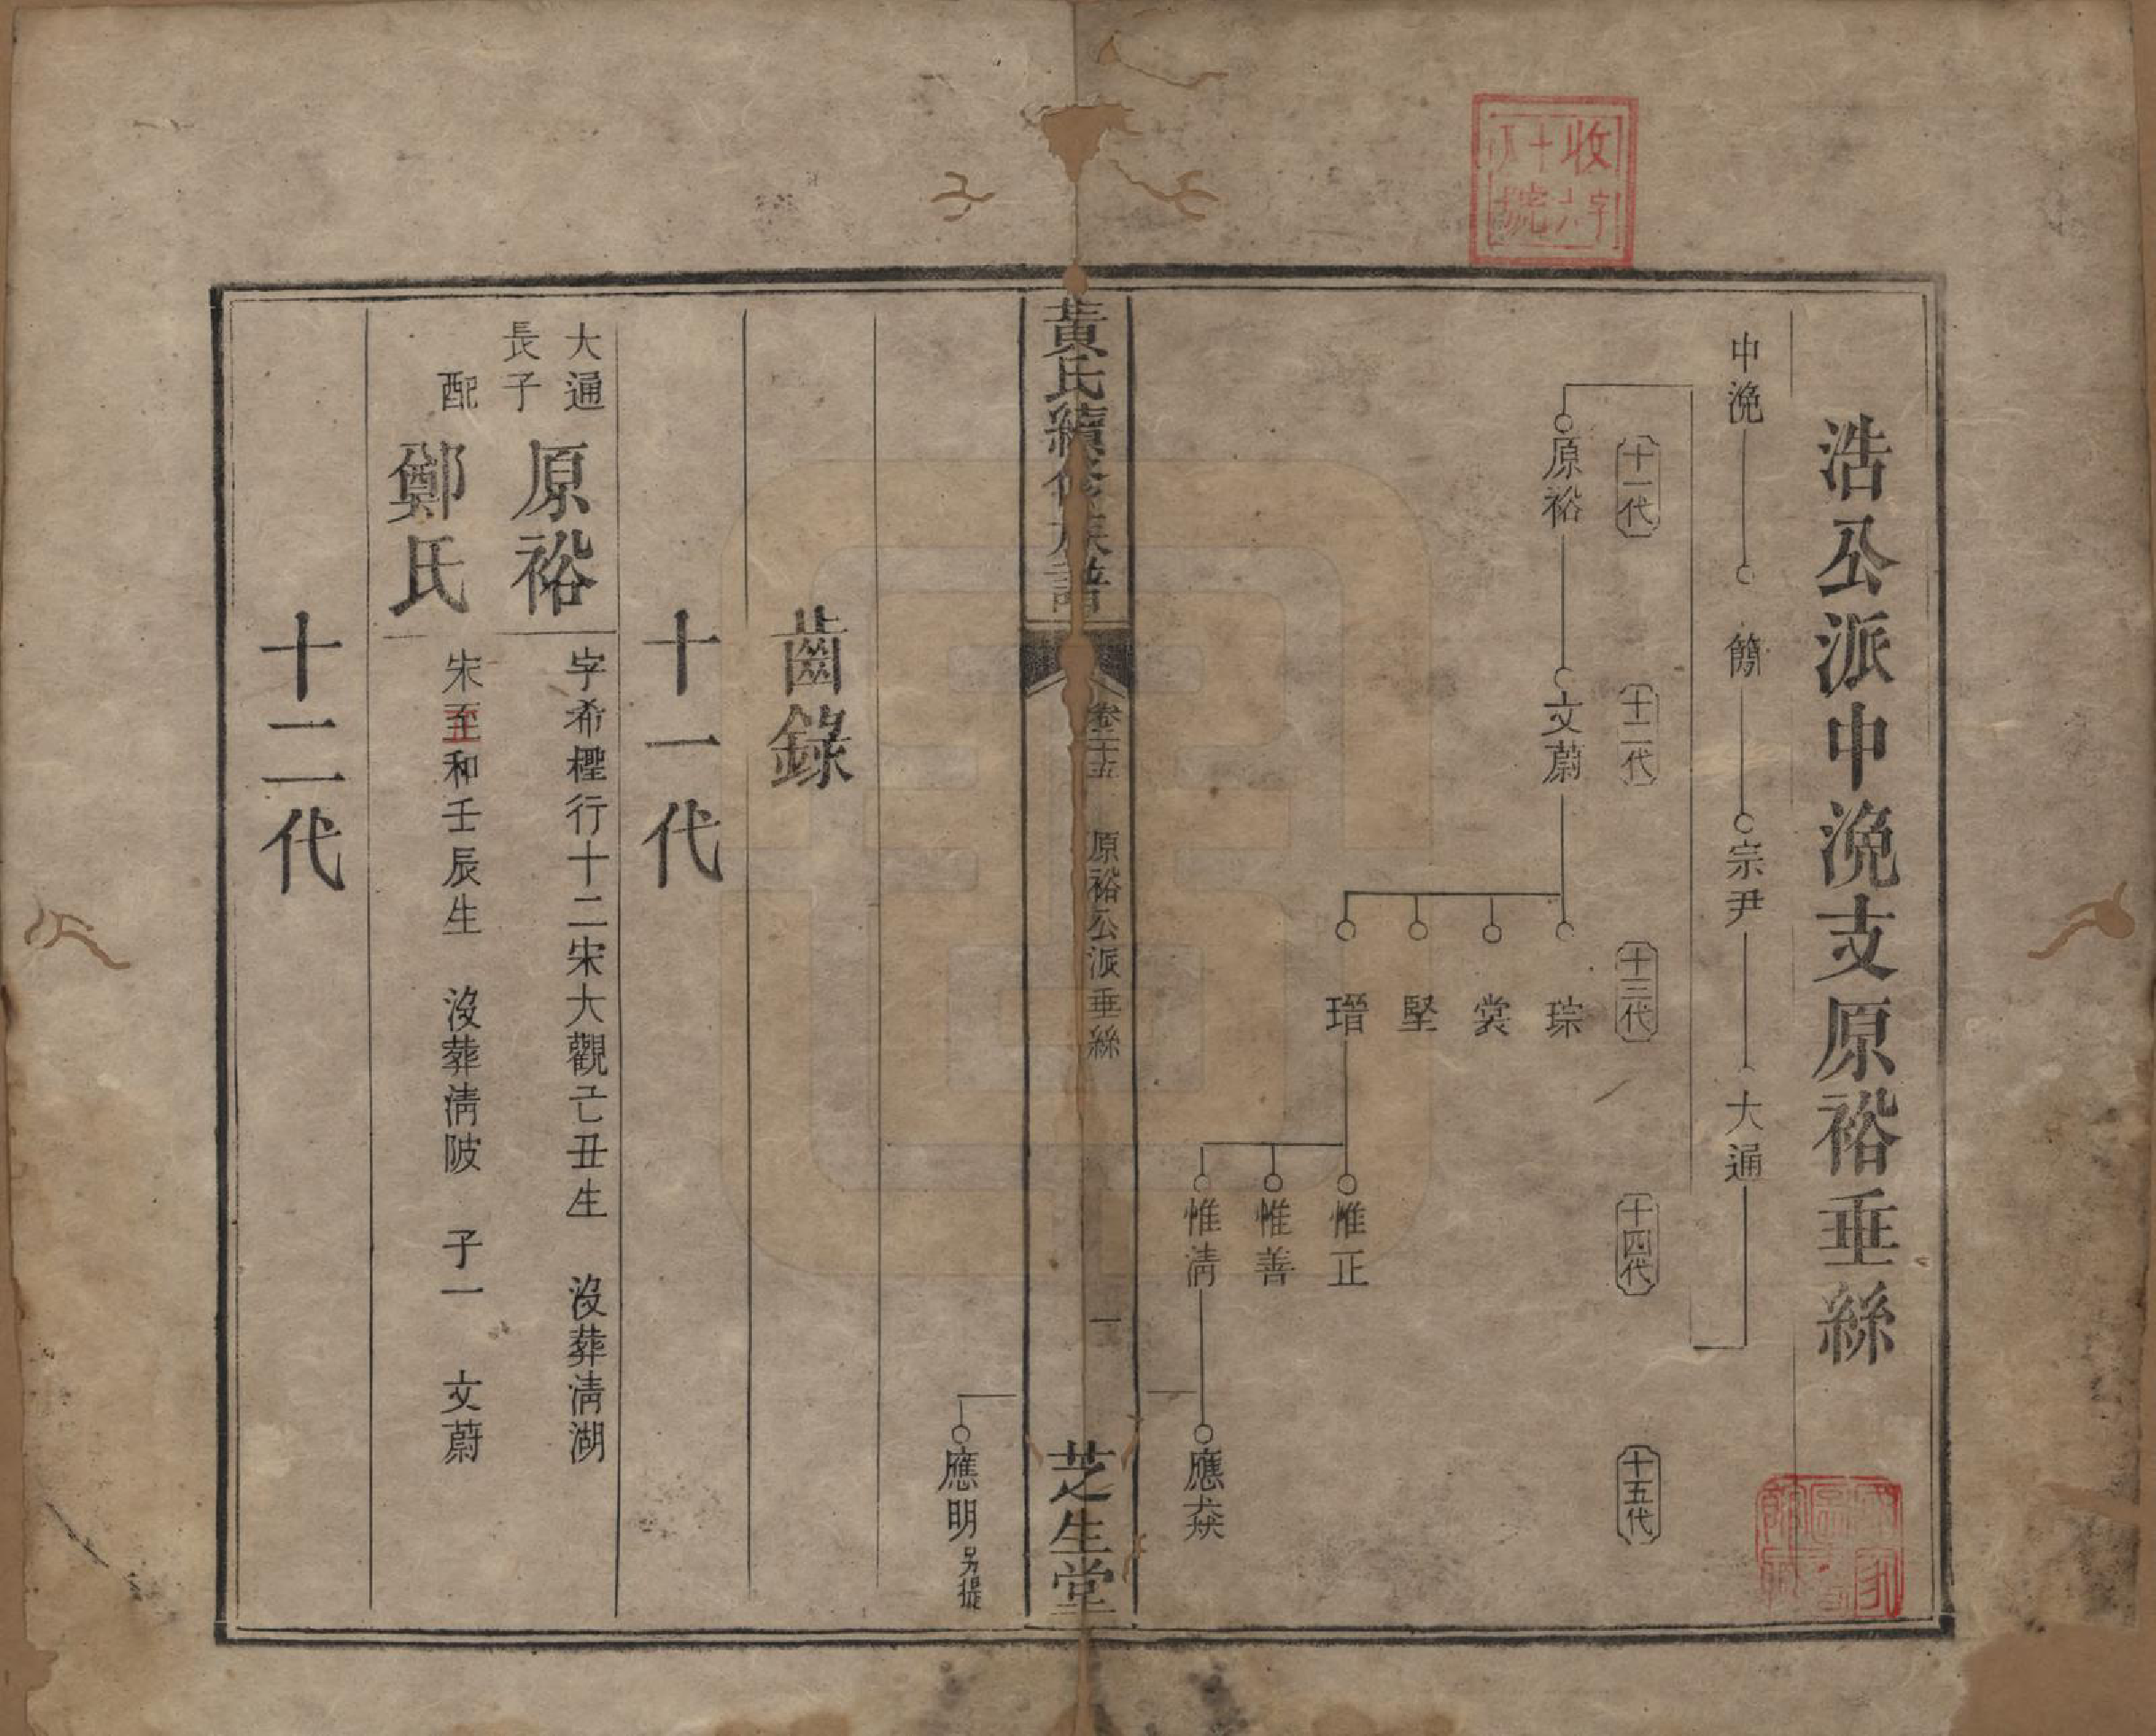 浩公派中浼支原裕垂絲
中浼 簡 宗尹 大通
十一代 十二代 十三代 十四代 十五代
原裕 文蔚 琮
裳
堅
瑨 惟正
惟善
惟淸 應猋
黃氏續修族譜 卷三十五 原裕公派垂絲 一 芝生堂
應明另提
齒錄
十一代
大通
長子
原裕 字希檉行十二宋大觀己丑生 沒葬淸湖
配 鄭氏 宋至和壬辰生 沒葬淸陂 子一 文蔚
十二代
收字
十六
號